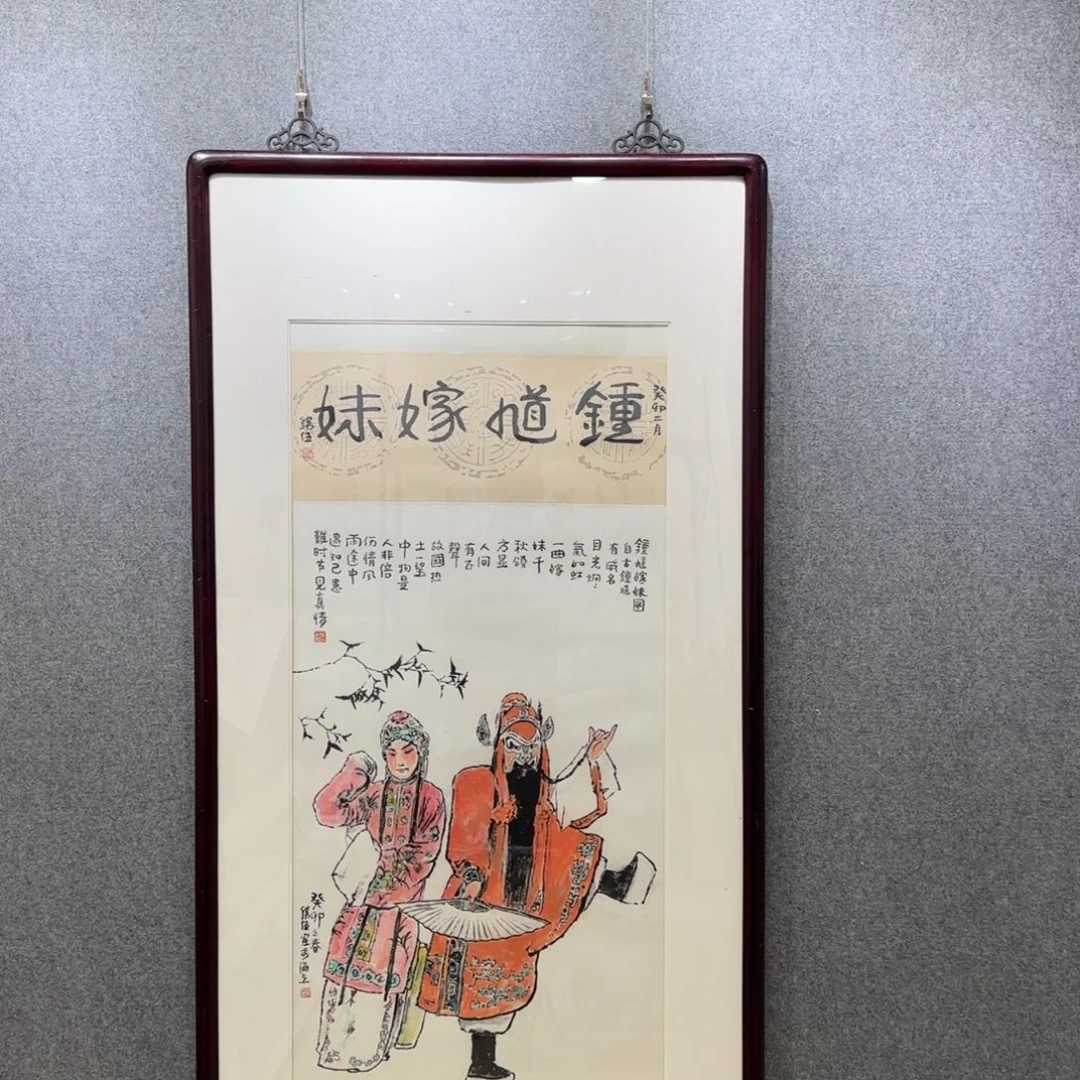 癸卯二月
鍾馗嫁妹
鍾馗嫁妹图
自古鍾馗
有威名
目光炯〻
氣如虹
一曲嫁
妹千
秋頌
方显
人间
有正
聲
故國热
土一望
中物是
人非倍
伤情风
雨途中
遇知己患
難时节見真情
癸卯之春